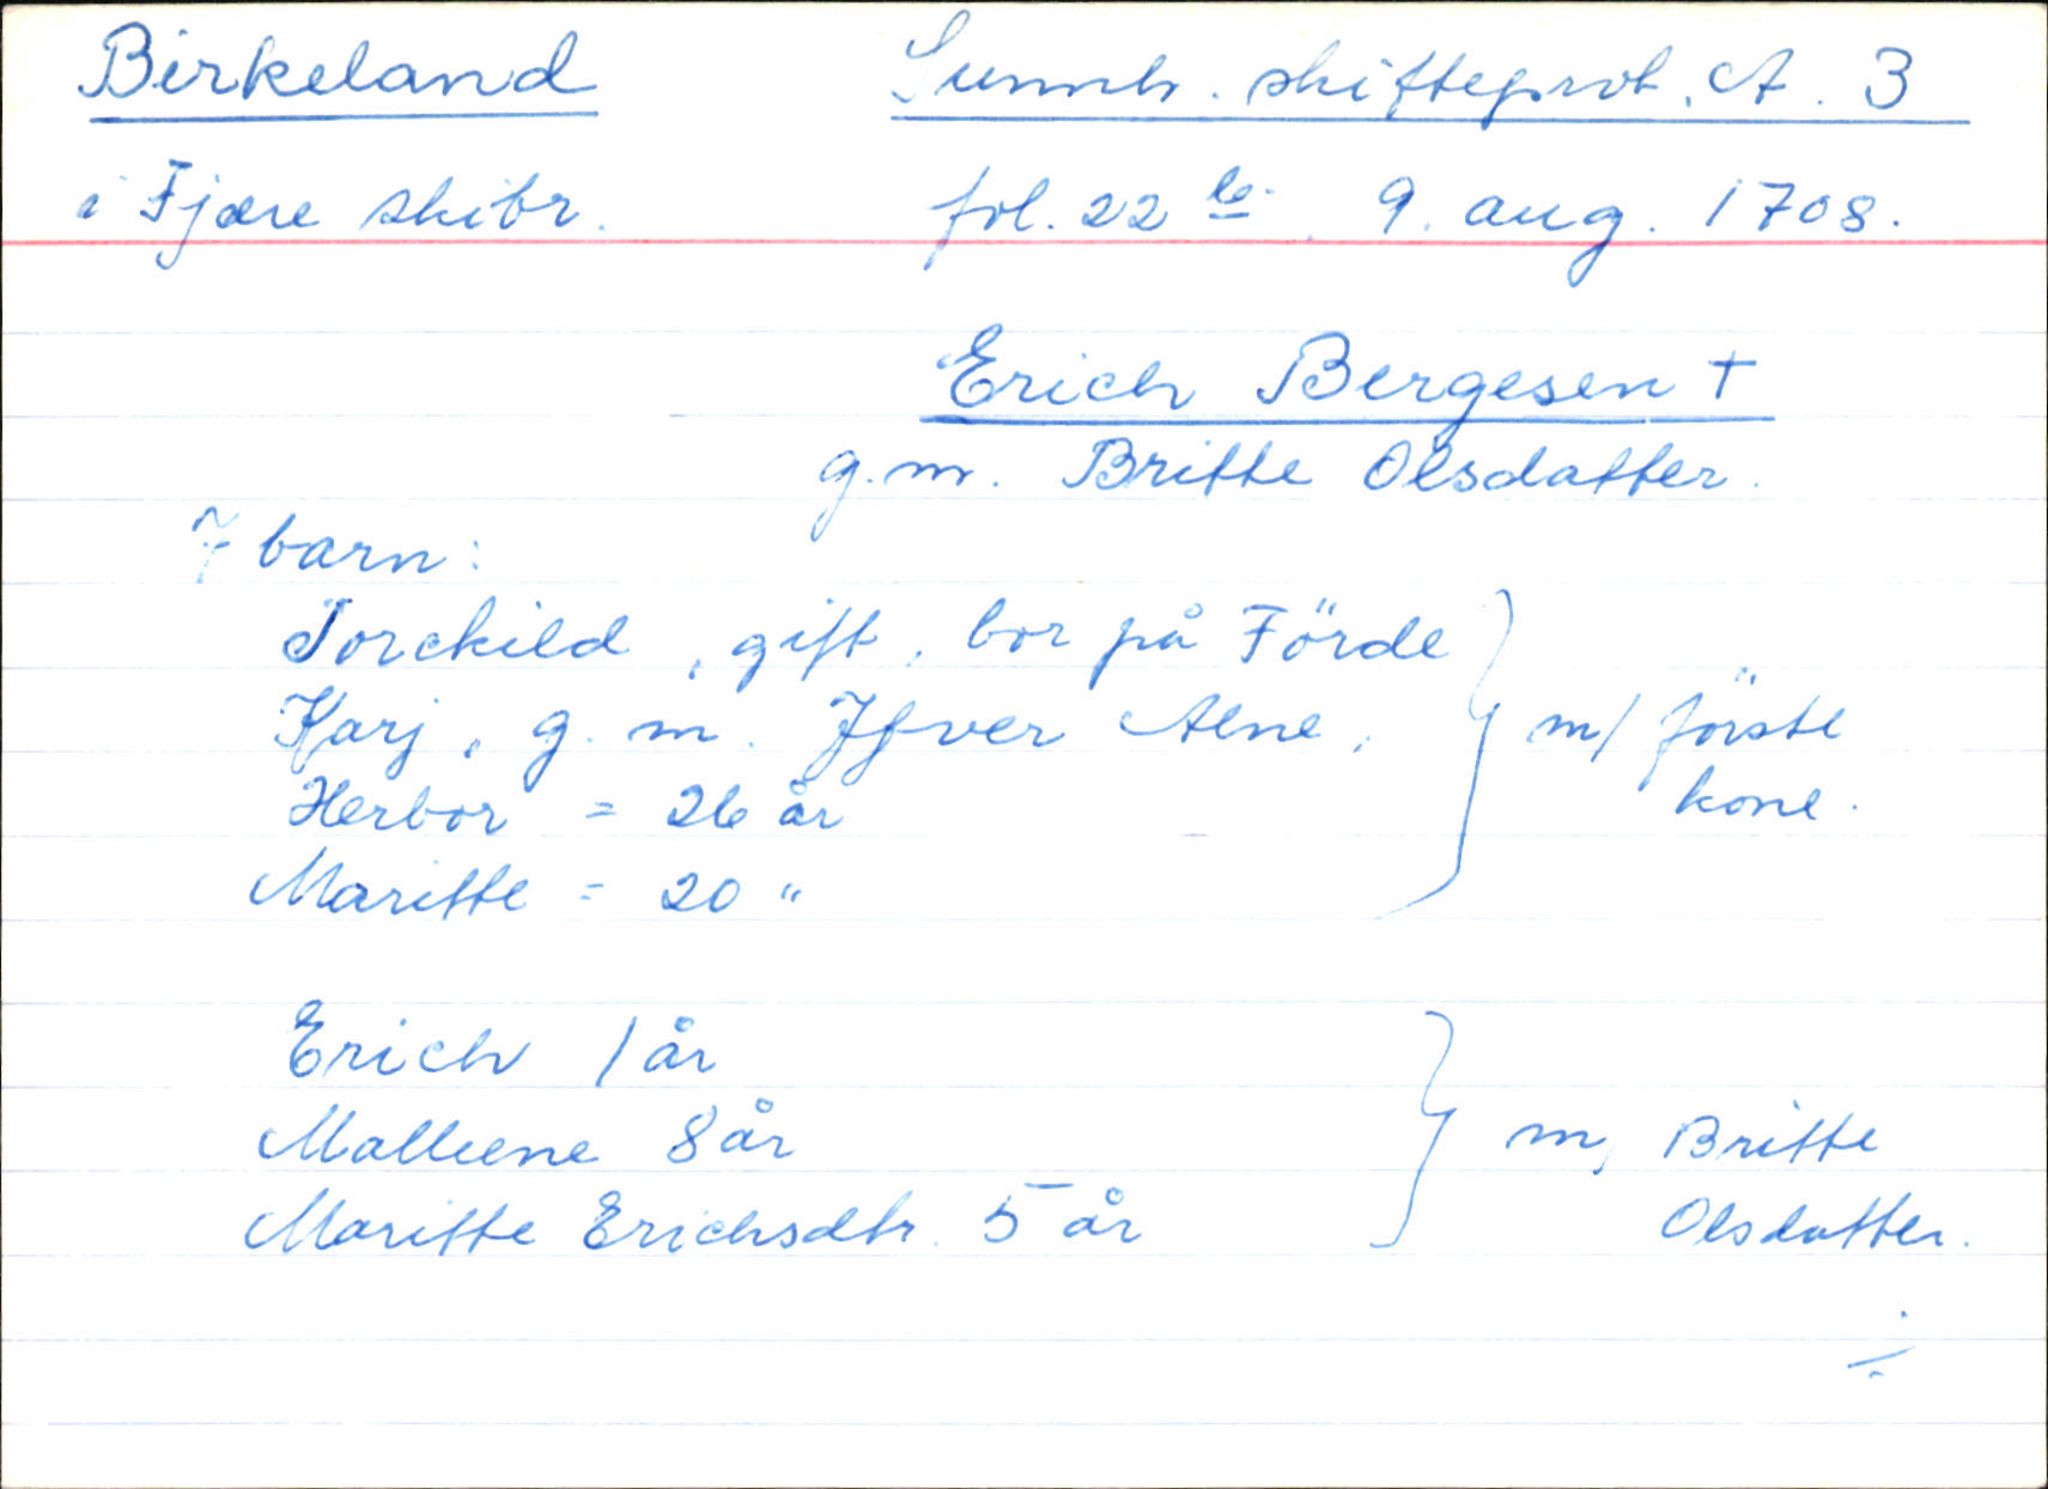 Birkeland Sunnh. skifteprot. A. 3
i Fjære skibr. fol. 22 b. 9. aug. 1708.
Erich Bergesen †
g.m. Britte Olsdatter.
7 barn:
Torckild, gift, bor på Förde
Karj, g. m. Ifver Alne, } m/ förste
Herbor = 26 år kone.
Maritte = 20 "
Erich 1 år
Mallene 8 år } m, Britte
Maritte Erichsdtr. 5 år Olsdatter.